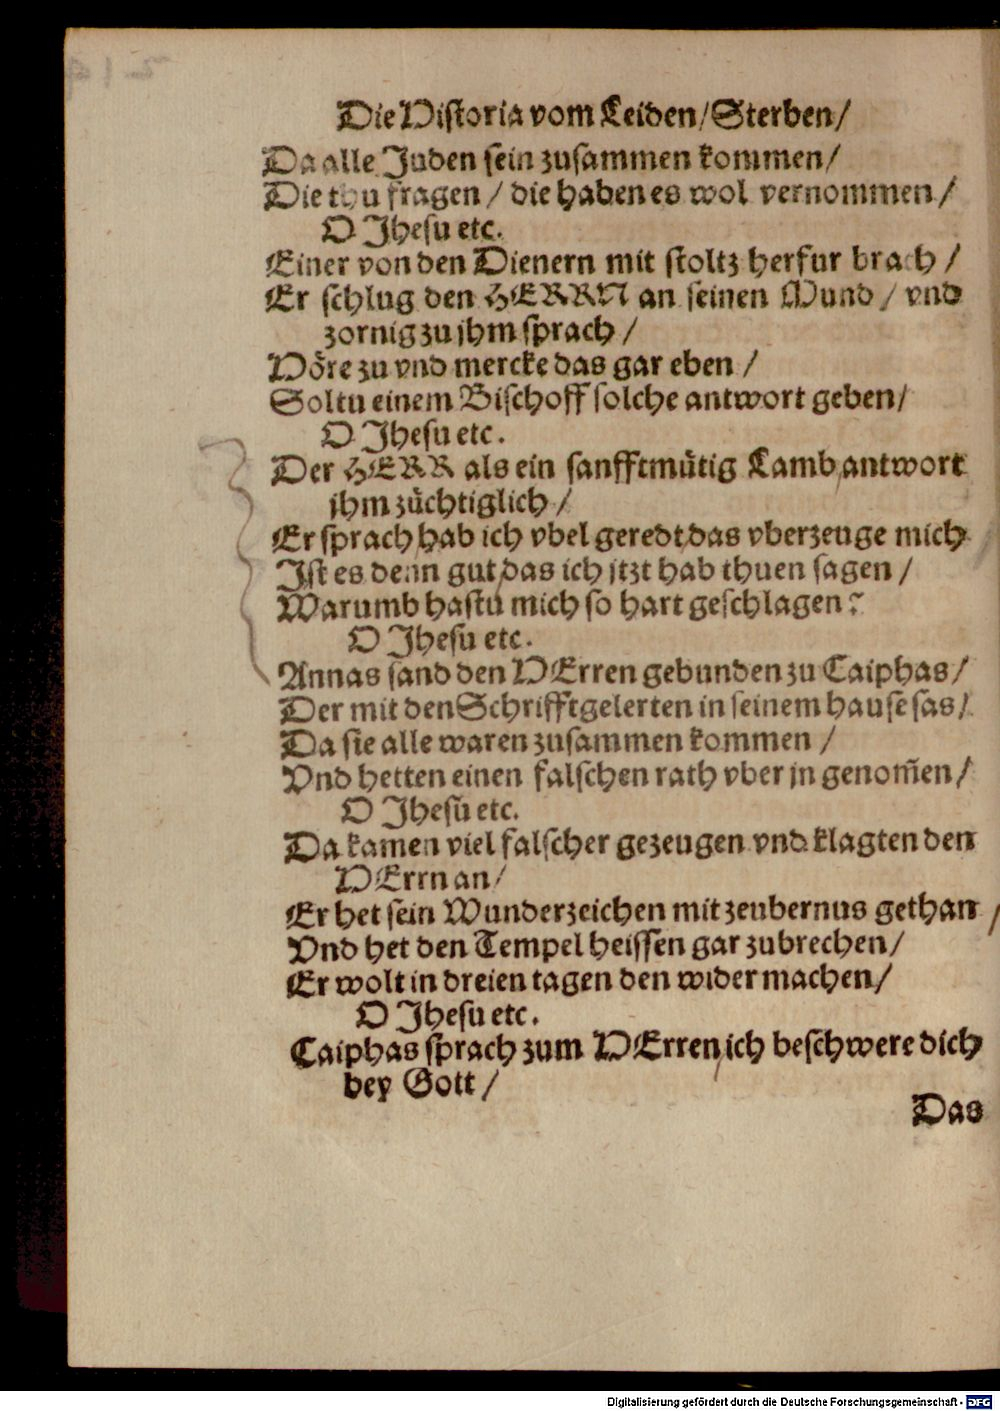 Die Historia vom Leiden/Sterben/
Da alle Juden sein zusammen kommen/
Die thu fragen / die haben es wol vernommen /
O Jhesu etc.
Einer von den Dienern mit stoltz herfur brach /
Er schlug den HERRN an seinen Mund / vnd
zornig zu jhm sprach /
Höre zu vnd mercke das gar eben /
Soltu einem Bischoff solche antwort geben/
O Jhesu etc.
Der HERR als ein sanfftmütig Lamb, antwort
jhm züchtiglich /
Er sprach, hab ich vbel geredt, das vberzeuge mich
Jst es denn gut, das ich jtzt hab thuen sagen /
Warumb hastu mich so hart geschlagen?
O Jhesu etc.
Annas sand den HErren gebunden zu Caiphas/
Der mit den Schrifftgelerten in seinem hause sas/
Da sie alle waren zusammen kommen /
Vnd hetten einen falschen rath vber jn genom̃en/
O Jhesu etc.
Da kamen viel falscher gezeugen vnd klagten den
HErrn an/
Er het sein Wunderzeichen mit zeubernus gethan /
Vnd het den Tempel heissen gar zubrechen/
Er wolt in dreien tagen den wider machen/
O Jhesu etc.
Caiphas sprach zum HErren, ich beschwere dich
bey Gott /
Das
Digitalisierung gefördert durch die Deutsche Forschungsgemeinschaft - DFG